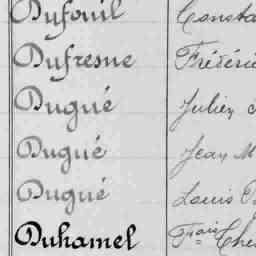 Dufouil Consta
Dufresne Frédéric
Dugué Julien
Dugué Jean M
Dugué Louis
Duhamel Frois Che